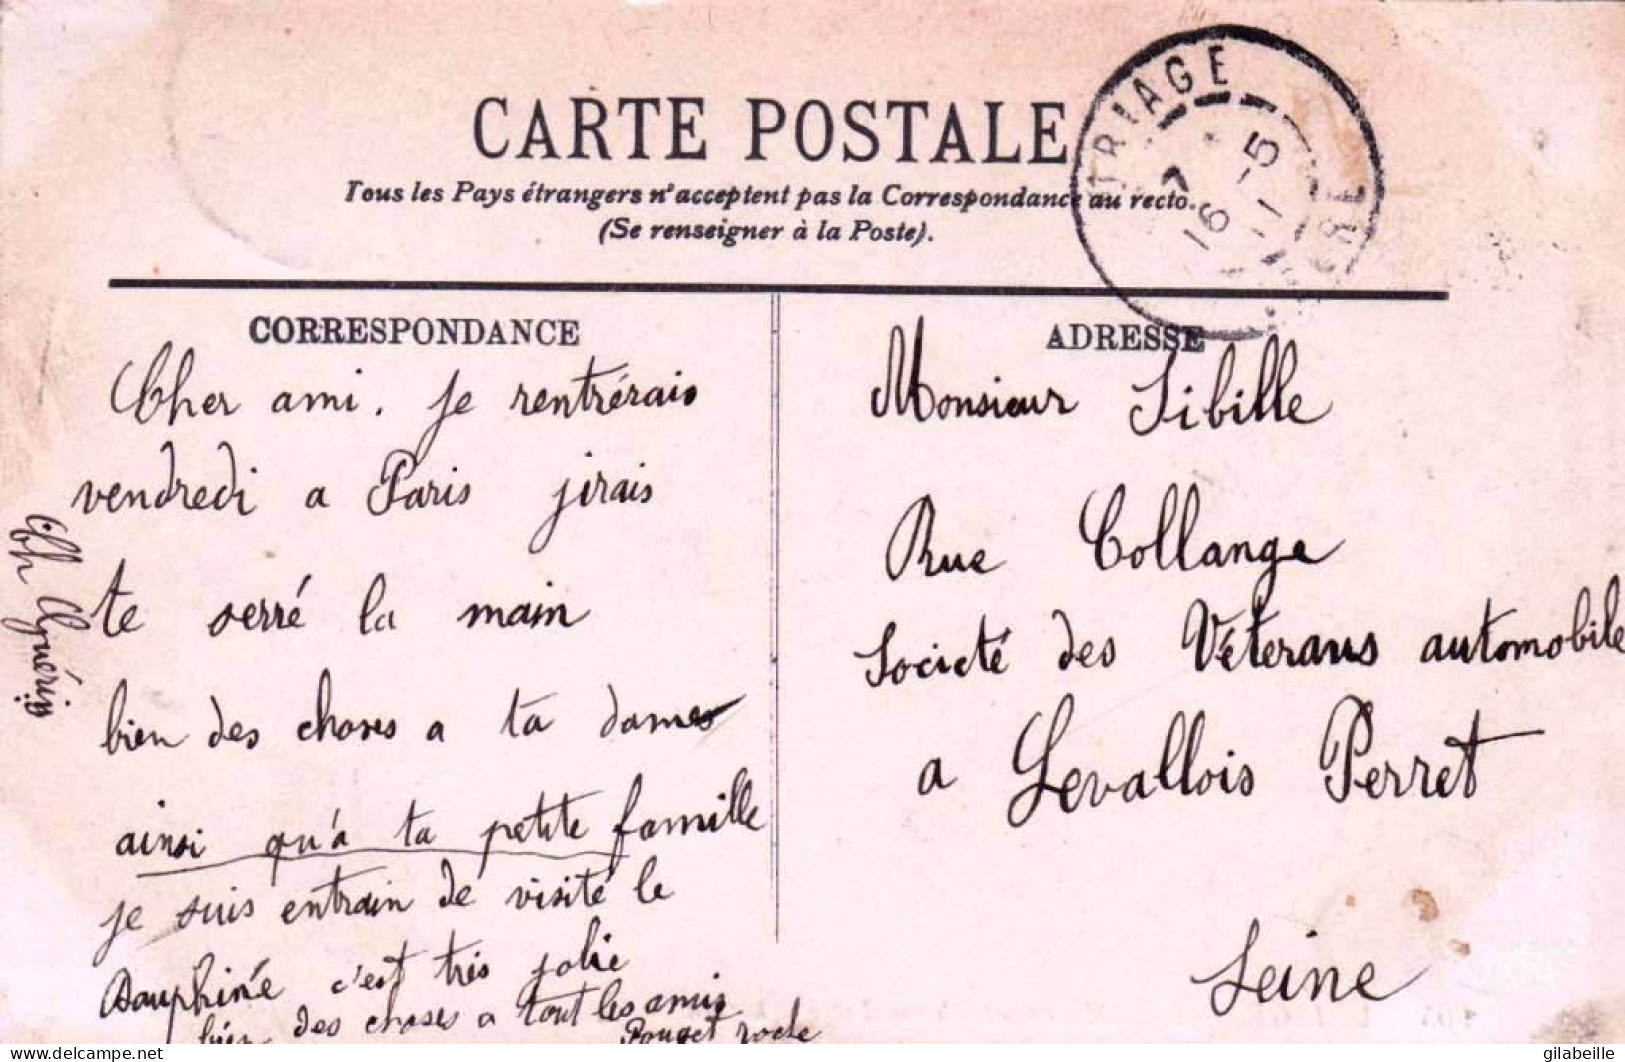 CARTE POSTALE
Tous les Pays étrangers n'acceptent pas la Correspondance au recto.
(Se renseigner à la Poste).
TRIAGE
16 - 5
11
CORRESPONDANCE
Cher ami. Je rentrérais
vendredi a Paris jirais
te serré la main
bien des choses a ta dames
ainsi qu'à ta petite famille
je suis entrain de visité le
Dauphiné c'est très jolie
bien des choses a tout les amis
Pouget roche
Ch Guérin
ADRESSE
Monsieur Sibille
Rue Collange
Societé des Véterans automobile
a Levallois Perret
Seine
gilabeille